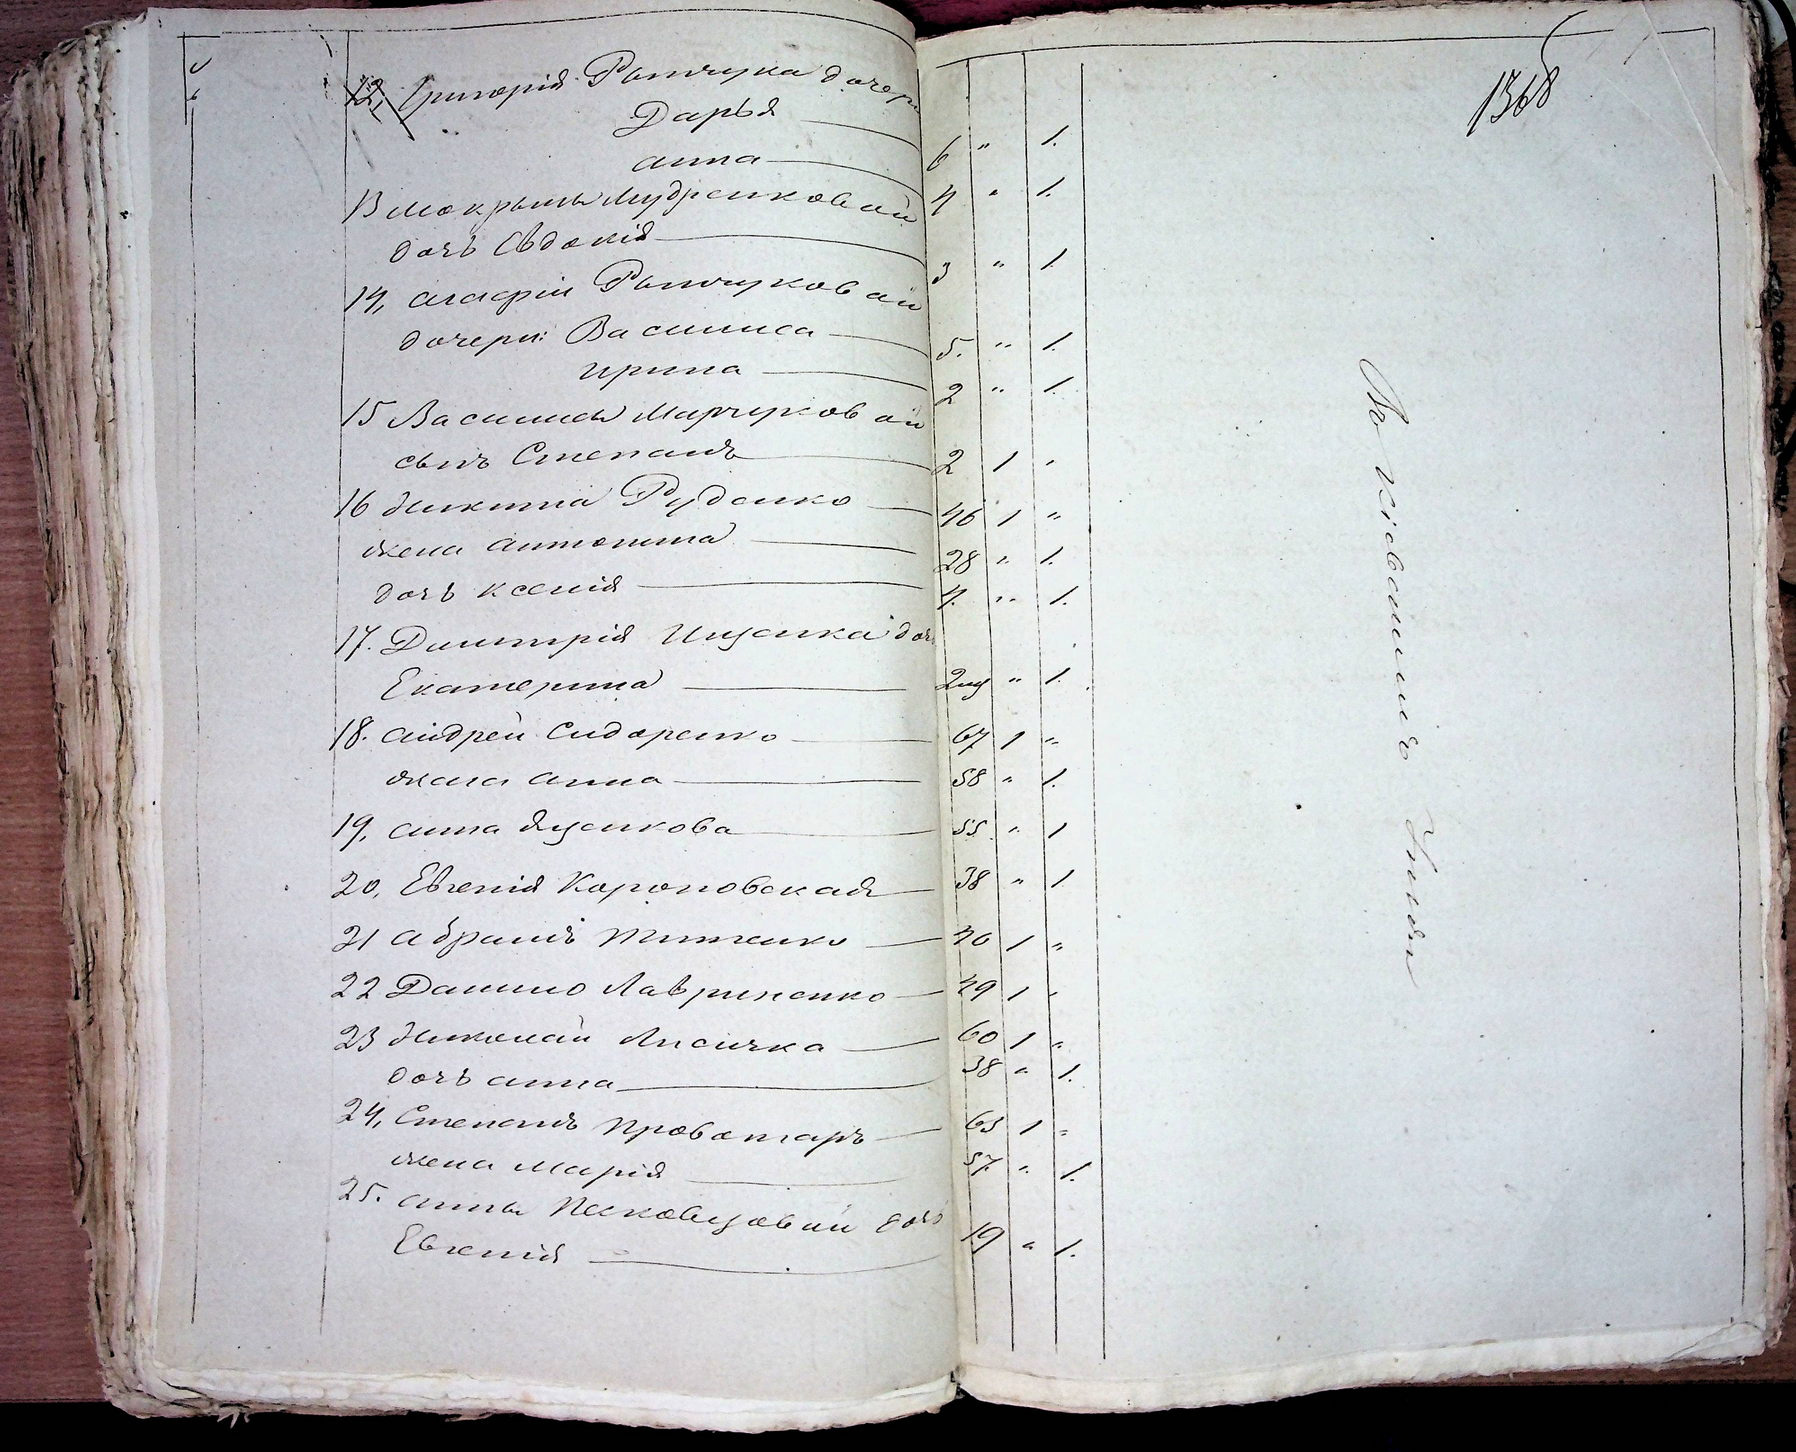 1368
12, Григорія Рытчука дочери
Дарья — 6 " 1.
Анна — 4 " 1.
13 Мокрыны Мудренковой
дочь Евдокія — 3 " 1.
14, Агафіи Рытчуковой
дочери: Василиса — 5. " 1.
Ирина — 2 " 1.
15 Василисы Марчуковой
сынъ Степанъ — 2 1 "
16 Никита Руденко — 46 1 "
жена Антонина — 28 " 1.
дочь Ксенія — 4. " 1.
17. Димитрія Ищенка дочь
Екатерина — " 1.
18. Андрей Сидоренко — 67 1 "
жена Анна — 58 " 1.
19, Анна Яценкова — 55 " 1
20, Евгенія Короповская — 38 " 1
21 Абрамъ Титенко — 40 1 "
22 Данило Лавриненко — 49 1 "
23 Николай Лисичка — 60 1 "
дочь Анна — 38 " 1.
24, Степанъ Провотаръ — 63 1 "
жена Марія — 57 " 1.
25. Анны дочь
Евгенія — 19 " 1.